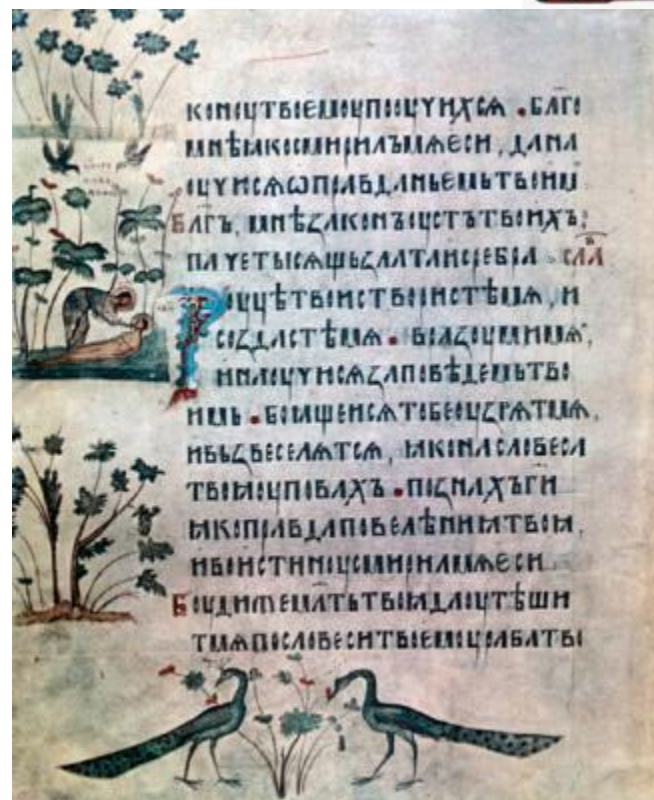 коноутвоемоупооучихсѧ •блго
мнѣꙗкосмирилъмѧеси, дана
оучисѧѡправданьемьтвоим
Блгъ, мнѣзаконъоустътвоихъ:
пачетысѧщьзлатаисребра сла
Роуцѣтвоиствористѣмѧ, и
создастѣмѧ • воразоумимѧ,
инаоучисѧзаповѣдемьтво
имь • боꙗщеисѧтобеоузрѧтмѧ,
ивьзвеселѧтсѧ, ꙗконасловеса
твоꙗоуповахъ • познахъги
ꙗкоправдаповелѣниꙗтвоꙗ,
ивоистиноусмирилмѧеси
Боудижемлтьтвоꙗдаоутѣши
тмѧпословеситвоемоурабатво